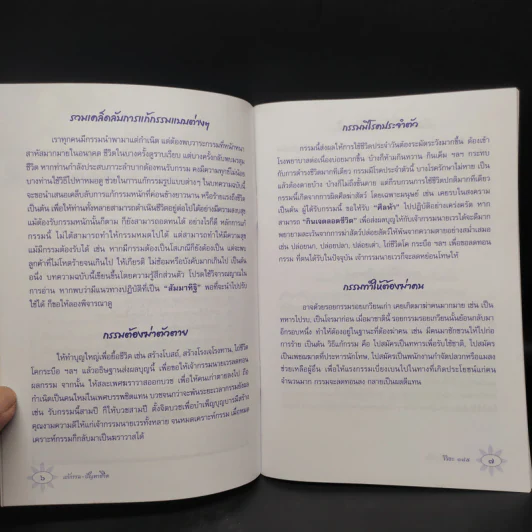 รวมเคล็ดลับการแก้กรรมแบบต่างๆ
เราทุกคนมีกรรมนำพามาแต่กำเนิด แต่ต้องพบวาระกรรมที่หนักหนา
สาหัสมากมายในอนาคต ชีวิตในบางครั้งดูราบเรียบ แต่บางครั้งกลับพบมรสุม
ชีวิต
บางท่านใช้วิธีไปหาหมอดู ช่วยในการแก้กรรมรูปแบบต่างๆ ในบทความฉบับนี้
จะขอนำเสนอเคล็ดลับการแก้กรรมหนักที่ค่อนข้างยาวนาน หรือร้ายแรงถึงชีวิต
เป็นต้น เพื่อให้ท่านทั้งหลายสามารถดำเนินชีวิตอยู่ต่อไปได้อย่างมีความสงบสุข
แม้ต้องรับกรรมหนักนั้นก็ตาม ก็ยังสามารถอดทนได้ อย่างไรก็ดี หลักการแก้
กรรมนี้ ไม่ได้สามารถทำให้กรรมหมดไปได้ แต่สามารถทำให้มีความสุข
แม้มีกรรมต้องรับได้ เช่น หากมีกรรมต้องเป็นโสเภณีก็ยังต้องเป็น แต่จะพบ
ลูกค้าที่ไม่โหดร้ายจนเกินไป ให้เกียรติ ไม่ข้อมหรือบังคับมากเกินไป เป็นต้น
อนึ่ง บทความฉบับนี้เขียนขึ้นโดยความรู้สึกส่วนตัว โปรดใช้วิจารณญาณใน
การอ่าน หากพบว่ามีแนวทางปฏิบัติที่เป็น "สัมมาทิฐิ" พอที่จะนำไปปรับ
ใช้ได้ ก็ขอให้ลองพิจารณาดู
กรรมต้องฆ่าตัวตาย
ให้ทำบุญใหญ่เพื่อยื้อชีวิต เช่น สร้างโบสถ์, สร้างโรงเจโรงทาน, ไถ่ชีวิต
โคกระบือ ฯลฯ แล้วอธิษฐานส่งผลบุญนี้ เพื่อขอให้เจ้ากรรมนายเวรลดทอน
ผลกรรม จากนั้น ให้สละเพศฆราวาสออกบวช เพื่อให้คนเก่าตายลงไป ถือ
กำเนิดเป็นคนใหม่ในเพศบรรพชิตแทน
เช่น รับกรรมนี้สามปี ก็ให้บวชสามปี ตั้งจิตบวชเพื่อบำเพ็ญบุญบารมีสร้าง
คุณงามความดีให้แก่เจ้ากรรมนายเวรทั้งหลาย จนหมดเคราะห์กรรม เมื่อหมด
เคราะห์กรรมก็กลับมาเป็นฆราวาสได้
๖
กรรมมีโรคประจำตัว
กรรมนี้ส่งผลให้การใช้ชีวิตประจำวันต้องระมัดระวังมากขึ้น ต้องเข้า
โรงพยาบาลต่อเนื่องบ่อยมากขึ้น บ้างก็ห้ามกินหวาน กินเค็ม ฯลฯ กระทบ
กับการดำรงชีวิตมากทีเดียว กรรมมีโรคประจำตัวนี้ บางโรครักษาไม่หาย เป็น
แล้วต้องตายบ้าง บ้างก็ไม่ถึงขั้นตาย แต่ก็รบกวนการใช้ชีวิตปกติมากทีเดียว
กรรมนี้เกิดจากการผิดศีลฆ่าสัตว์ โดยเฉพาะมนุษย์ เช่น เคยรบในสงคราม
เป็นต้น ผู้ได้รับกรรมนี้ ขอให้รับ "ศีลห้า" ไปปฏิบัติอย่างเคร่งครัด หาก
สามารถ "กินเจตลอดชีวิต" เพื่อส่งผลบุญให้กับเจ้ากรรมนายเวรได้จะดีมาก
พยายามละเว้นจากการฆ่าสัตว์ปล่อยสัตว์ให้พ้นจากความตายอย่างสม่ำเสมอ
เช่น ปล่อยนก, ปล่อยปลา, ปล่อยเต่า, ไถ่ชีวิตโค กระบือ ฯลฯ เพื่อชดลดทอน
กรรม ที่ตนได้รับในปัจจุบัน เจ้ากรรมนายเวรก็จะลดหย่อนโทษให้
กรรมทำให้ต้องฆ่าคน
อาจด้วยรอยกรรมรอยเกวียนเก่า เคยเกิดมาฆ่าคนมากมาย เช่น เป็น
ทหารไปรบ, เป็นโจรมาก่อน เมื่อมาชาตินี้ รอยกรรมรอยเกวียนนั้นย้อนกลับมา
อีกรอบหนึ่ง ทำให้ต้องอยู่ในฐานะที่ต้องฆ่าคน เช่น มีคนมาชักชวนให้ไปก่อ
การร้าย เป็นต้น วิธีแก้กรรม คือ ไปสมัครเป็นทหารเพื่อรับใช้ชาติ, ไปสมัคร
เป็นพยณมาตที่ประหารนักโทษ, ไปสมัครเป็นพนักงานกำจัดปลวกหรือแมลง
ช่วยเหลือผู้อื่น เพื่อให้แรงกรรมเบี่ยงเบนไปในทางที่เกิดประโยชน์แก่คน
จำนวนมาก กรรมจะลดทอนลง กลายเป็นผลดีแทน
๗